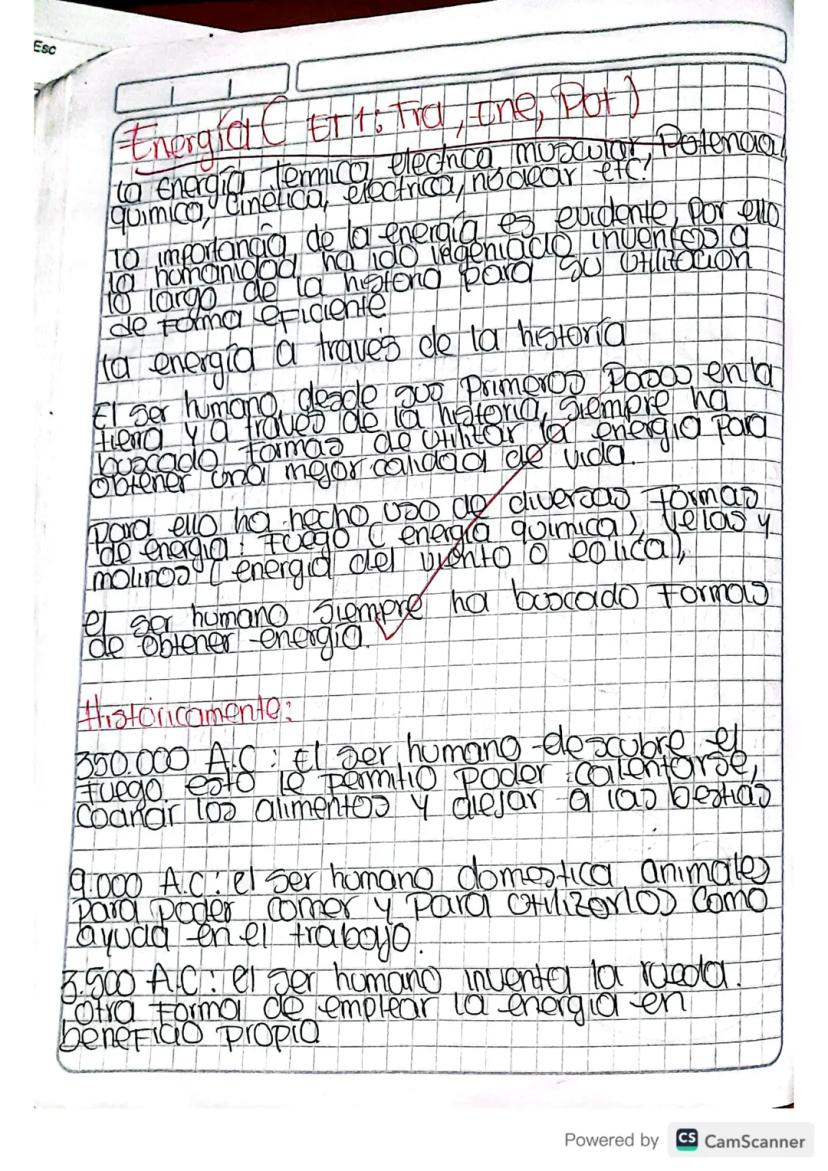 Esc
Energía ( ET1: Tra, Cne, Pot )
la Energía Termica electrica muscular Potencial
quimico, cinética, electrica, nuclear etc!
la importancia de la energía es evidente, por ello
la humanidad ha ido ingeniado inventos a
lo largo de la historia para su utilización
de forma eficiente
la energía a través de la historía
El ser humano desde sus primeros pasos en la
tierra y a través de la historia, siempre ha
buscado formas de utilizar la energia para
obtener una mejor calidad de vida.
para ello ha hecho uso de diversas formas
de energia: fuego ( energía quimica), velas y
molinos ( energia del viento o eolica),
el ser humano siempre ha buscado formas
de obtener energía.
Históricamente:
350.000 A.C : El ser humano descubre el
fuego esto le permitio poder calentarse,
cocinar los alimentos y alejar a las bestias
9.000 A.C : el ser humano domestica animales
para poder comer y para utilizarlos como
ayuda en el trabajo.
3.500 A.C : el ser humano inventa la rueda.
otra forma de emplear la energia en
beneficio propio
Powered by CS CamScanner